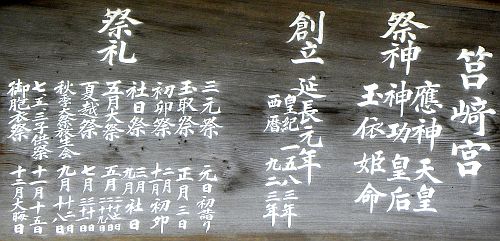 筥崎宮
祭神
應神天皇
神功皇后
玉依姫命
創立
延長元年
皇紀 一五八三年
西暦 九二三年
祭礼
三元祭 元日初詣り
玉取祭 正月三日
初卯祭 十二月初卯
社日祭 三月九月社日
五月大祭 五月
夏越祭 七月
秋季大祭放生会 九月
七五三子供祭 十月十五日
御胞衣祭 十二月大晦日